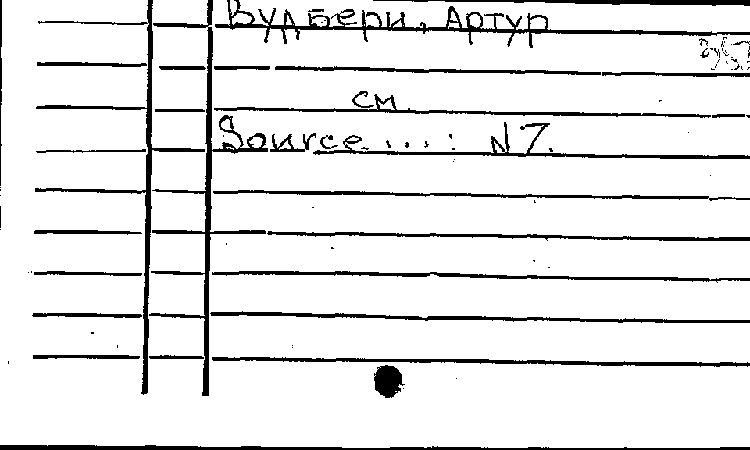 Вудбери, Артур
см.
Source ...: N7.